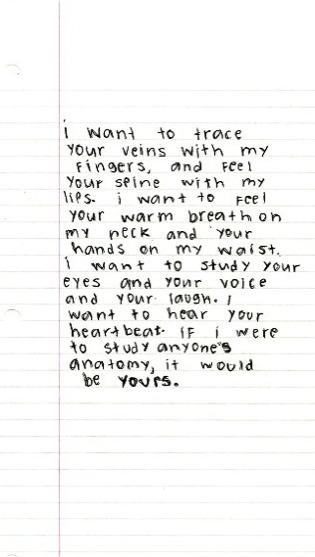 i want to trace
your veins with my
fingers, and feel
your spine with my
lips. i want to feel
your warm breath on
my neck and your
hands on my waist.
i want to study your
eyes and your voice
and your laugh. i
want to hear your
heartbeat. if i were
to study anyone's
anatomy, it would
be yours.